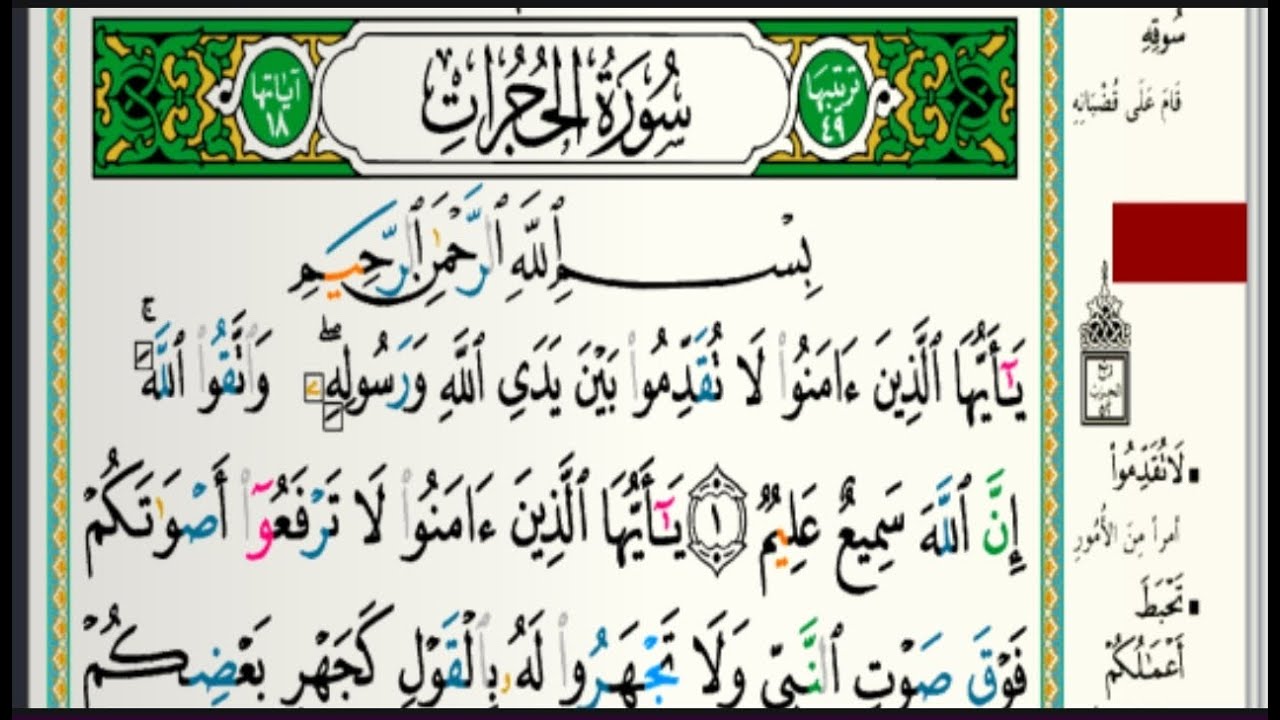 ترتيبها ٤٩
سُورَةُ الحُجُرَاتِ
آياتها ١٨
بِسْمِ ٱللَّهِ ٱلرَّحْمَٰنِ ٱلرَّحِيمِ
يَٰٓأَيُّهَا ٱلَّذِينَ ءَامَنُوا۟ لَا تُقَدِّمُوا۟ بَيْنَ يَدَىِ ٱللَّهِ وَرَسُولِهِۦ ۖ وَٱتَّقُوا۟ ٱللَّهَ ۚ
إِنَّ ٱللَّهَ سَمِيعٌ عَلِيمٌ ١ يَٰٓأَيُّهَا ٱلَّذِينَ ءَامَنُوا۟ لَا تَرْفَعُوٓا۟ أَصْوَٰتَكُمْ
فَوْقَ صَوْتِ ٱلنَّبِىِّ وَلَا تَجْهَرُوا۟ لَهُۥ بِٱلْقَوْلِ كَجَهْرِ بَعْضِكُمْ
سُوقِهِ
قَامَ عَلَى قُضْبَانِهِ
لَا تُقَدِّمُوا۟
أمراً مِنَ الأُمُورِ
تَحْبَطَ
أَعْمَٰلُكُمْ